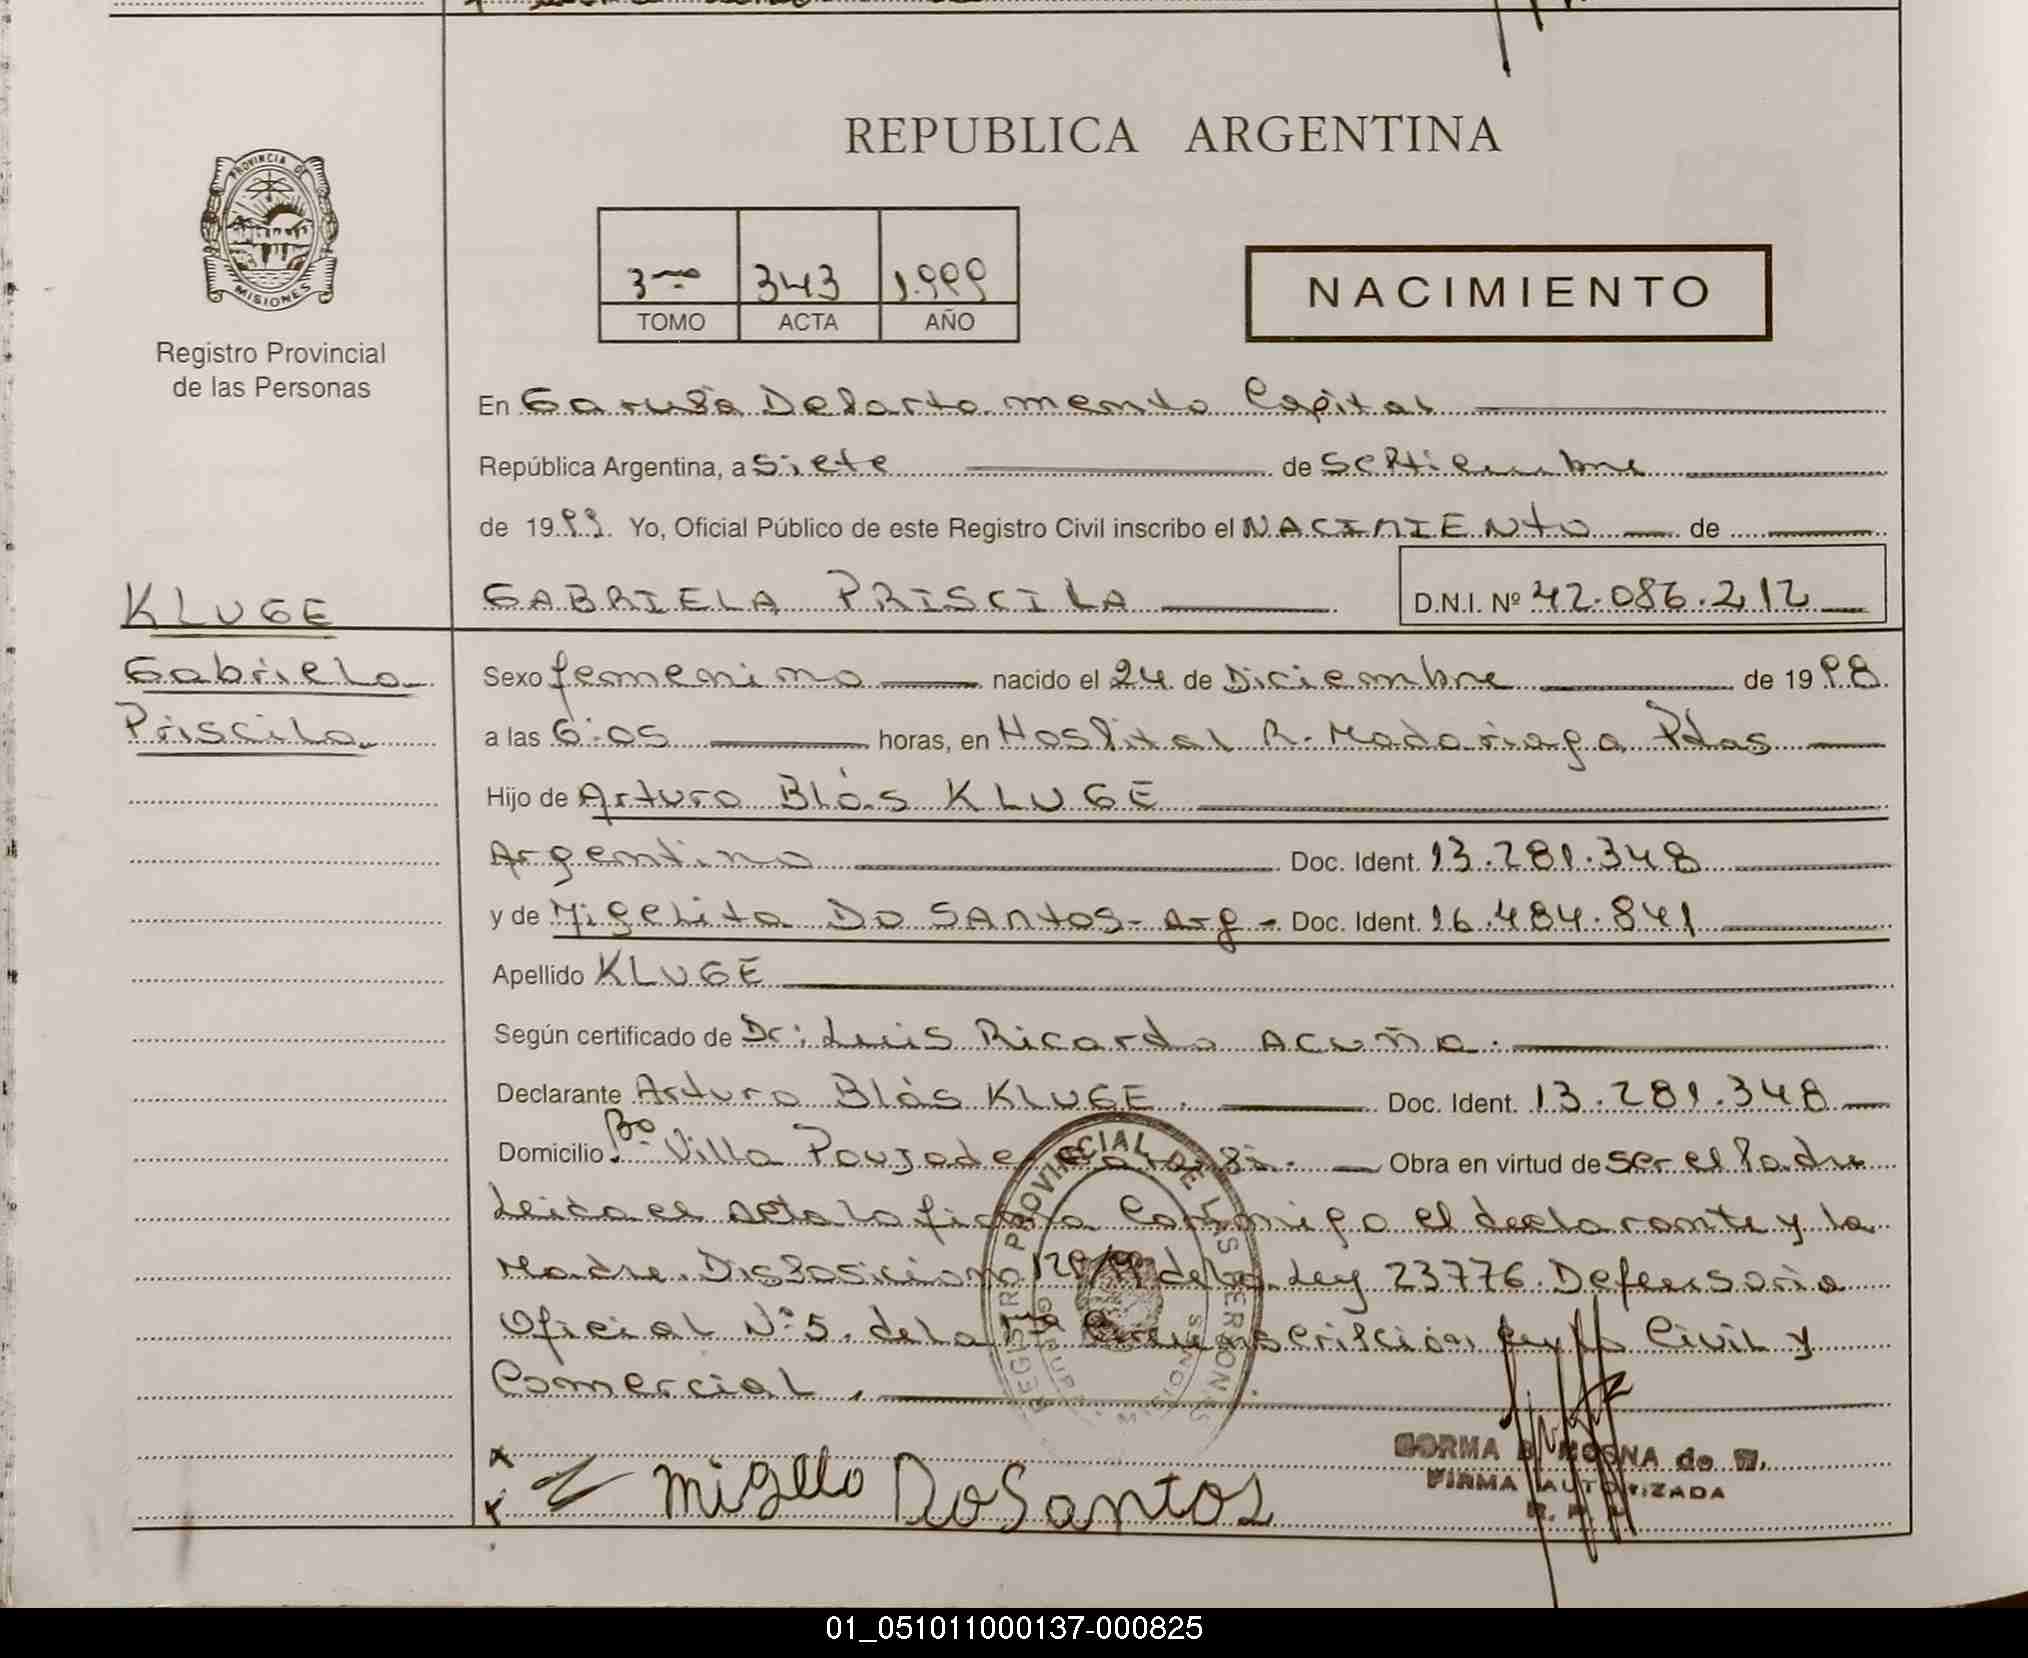 REPUBLICA ARGENTINA
PROVINCIA DE
MISIONES
Registro Provincial
de las Personas
3ro 343 1.999
TOMO ACTA AÑO
NACIMIENTO
En Garupá Departamento Capital
República Argentina, a siete de septiembre
de 1999. Yo, Oficial Público de este Registro Civil inscribo el NACIMIENTO de
KLUGE
GABRIELA PRISCILA D.N.I. Nº 42.086.212
Gabriela
Priscila
Sexo femenino nacido el 24 de Diciembre de 1998
a las 6:05 horas, en Hospital R. Madariaga Pdas
Hijo de Arturo Blás KLUGE
Argentino Doc. Ident. 13.281.348
y de Migelita DO SANTOS - Arg - Doc. Ident. 16.484.841
Apellido KLUGE
Según certificado de Dr: Luis Ricardo Acuña.
Declarante Arturo Blás KLUGE. Doc. Ident. 13.281.348
Domicilio Bo. Villa Poujade Garupá. Obra en virtud de ser el Padre
Leida el acta la firma Conmigo el declarante y la
Madre. Disposición de la Ley 23776. Defensoria
Oficial Nº 5. de la Circunscripción Civil y
Comercial.
REGISTRO PROVINCIAL DE LAS PERSONAS
GARUPA
MISIONES
x
x Migello DoSantos
NORMA B. MOSNA de
FIRMA AUTORIZADA
R. P. P.
01_051011000137-000825